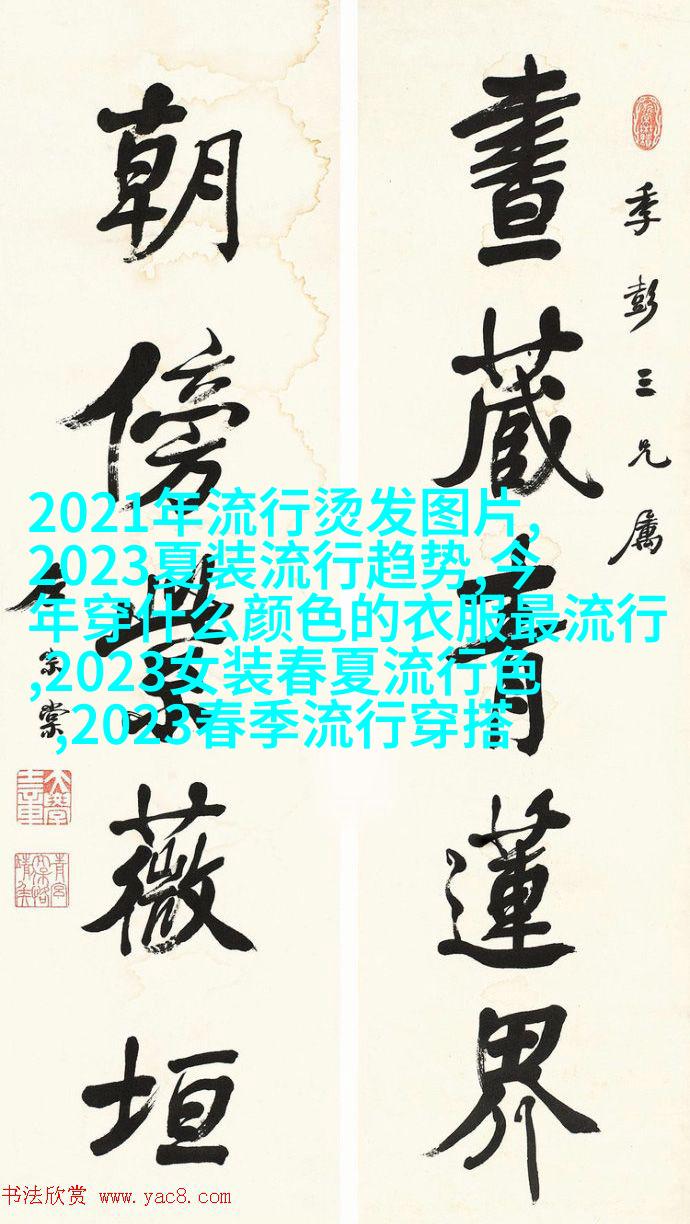 季彭三兄属
晝藏青蓮界
朝傍紫薇垣
左宗棠
2021年流行烫发图片,
2023夏装流行趋势,今
年穿什么颜色的衣服最流行
,2023女装春夏流行色
,2023春季流行穿搭
书法欣赏 www.yac8.com